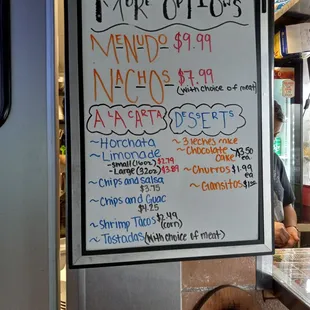 More Options
MENUDO $9.99
NACHOS $7.99
(with choice of meat)
A LA CARTA
~Horchata
~Limonade
-small(16oz) $2.79
-Large (32oz) $3.89
~Chips and Salsa
$3.75
~Chips and Guac
$4.25
~Shrimp Tacos $2.49
(corn)
~Tostadas (with choice of meat)
DESSERTS
~3 leches
~Chocolate
Cake $3.50
ea
~Churros $1.99
ea
~Gansitos